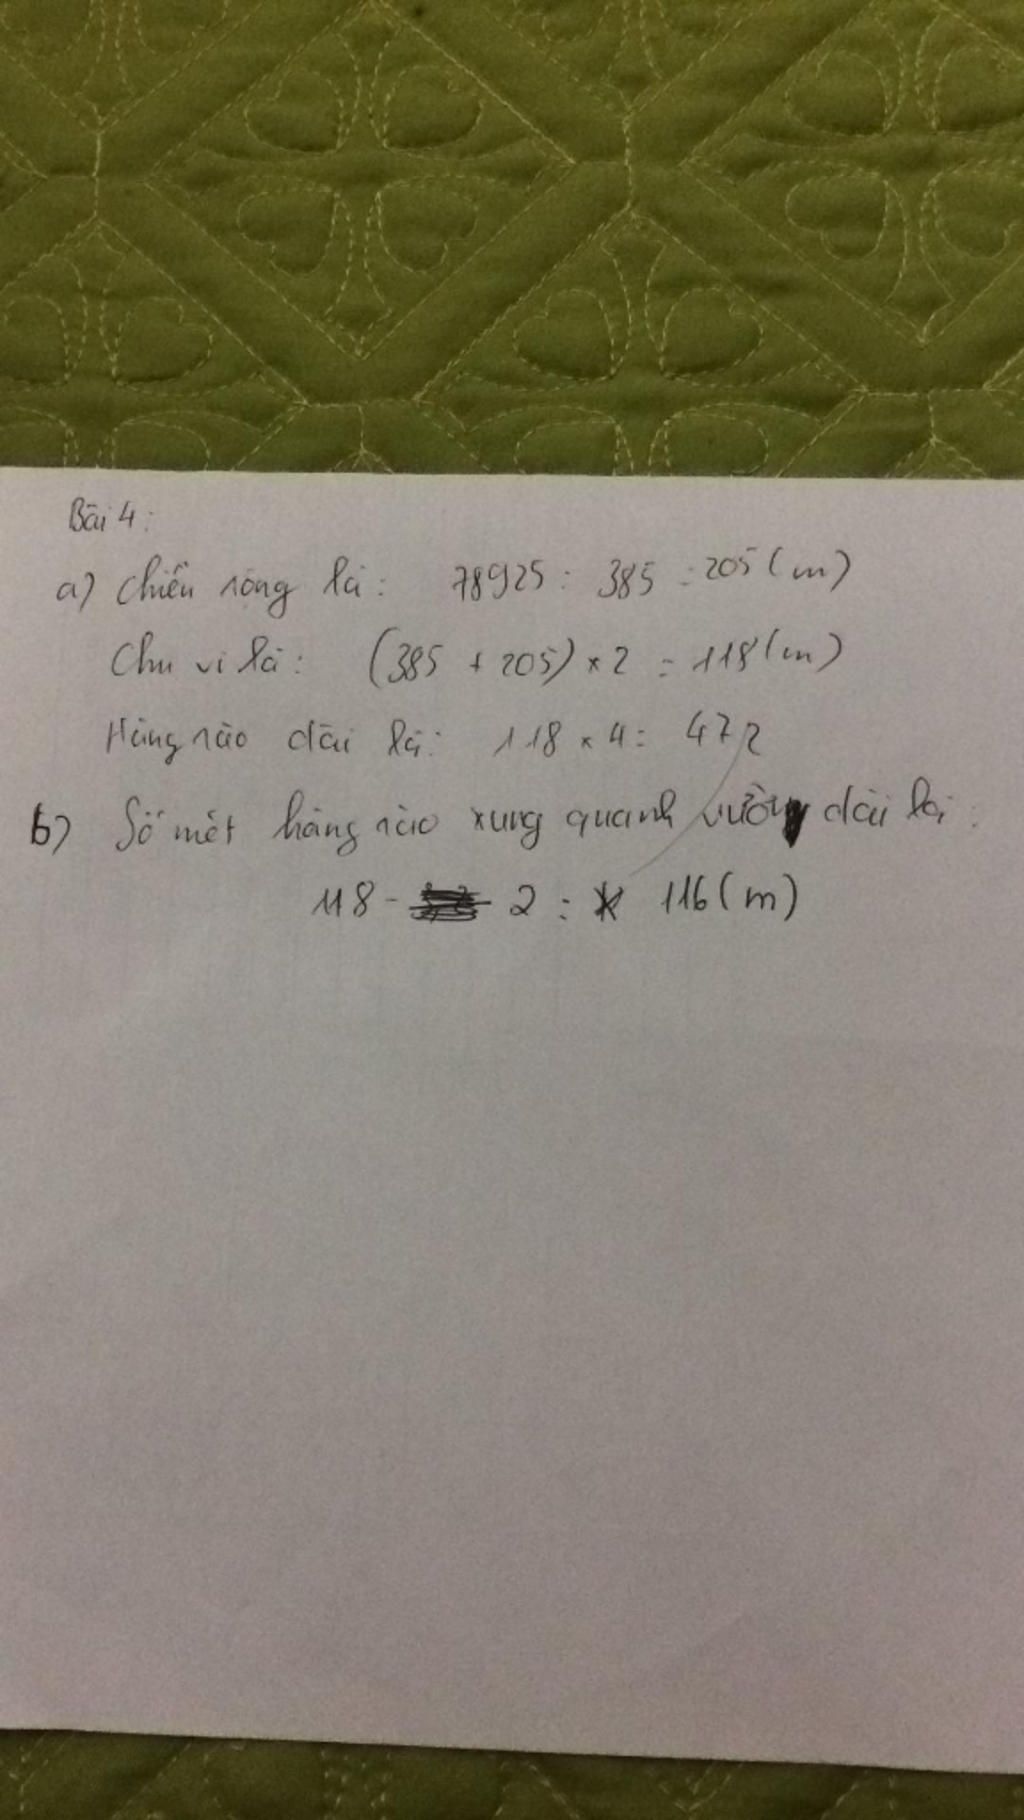 Bài 4:
a) Chiều rộng là: 78925 : 385 = 205 (m)
Chu vi là: (385 + 205) × 2 = 118 (m)
Hàng rào dài là: 118 × 4 = 472
b) Số mét hàng rào xung quanh vườn dài là:
118 - 2 = 116 (m)